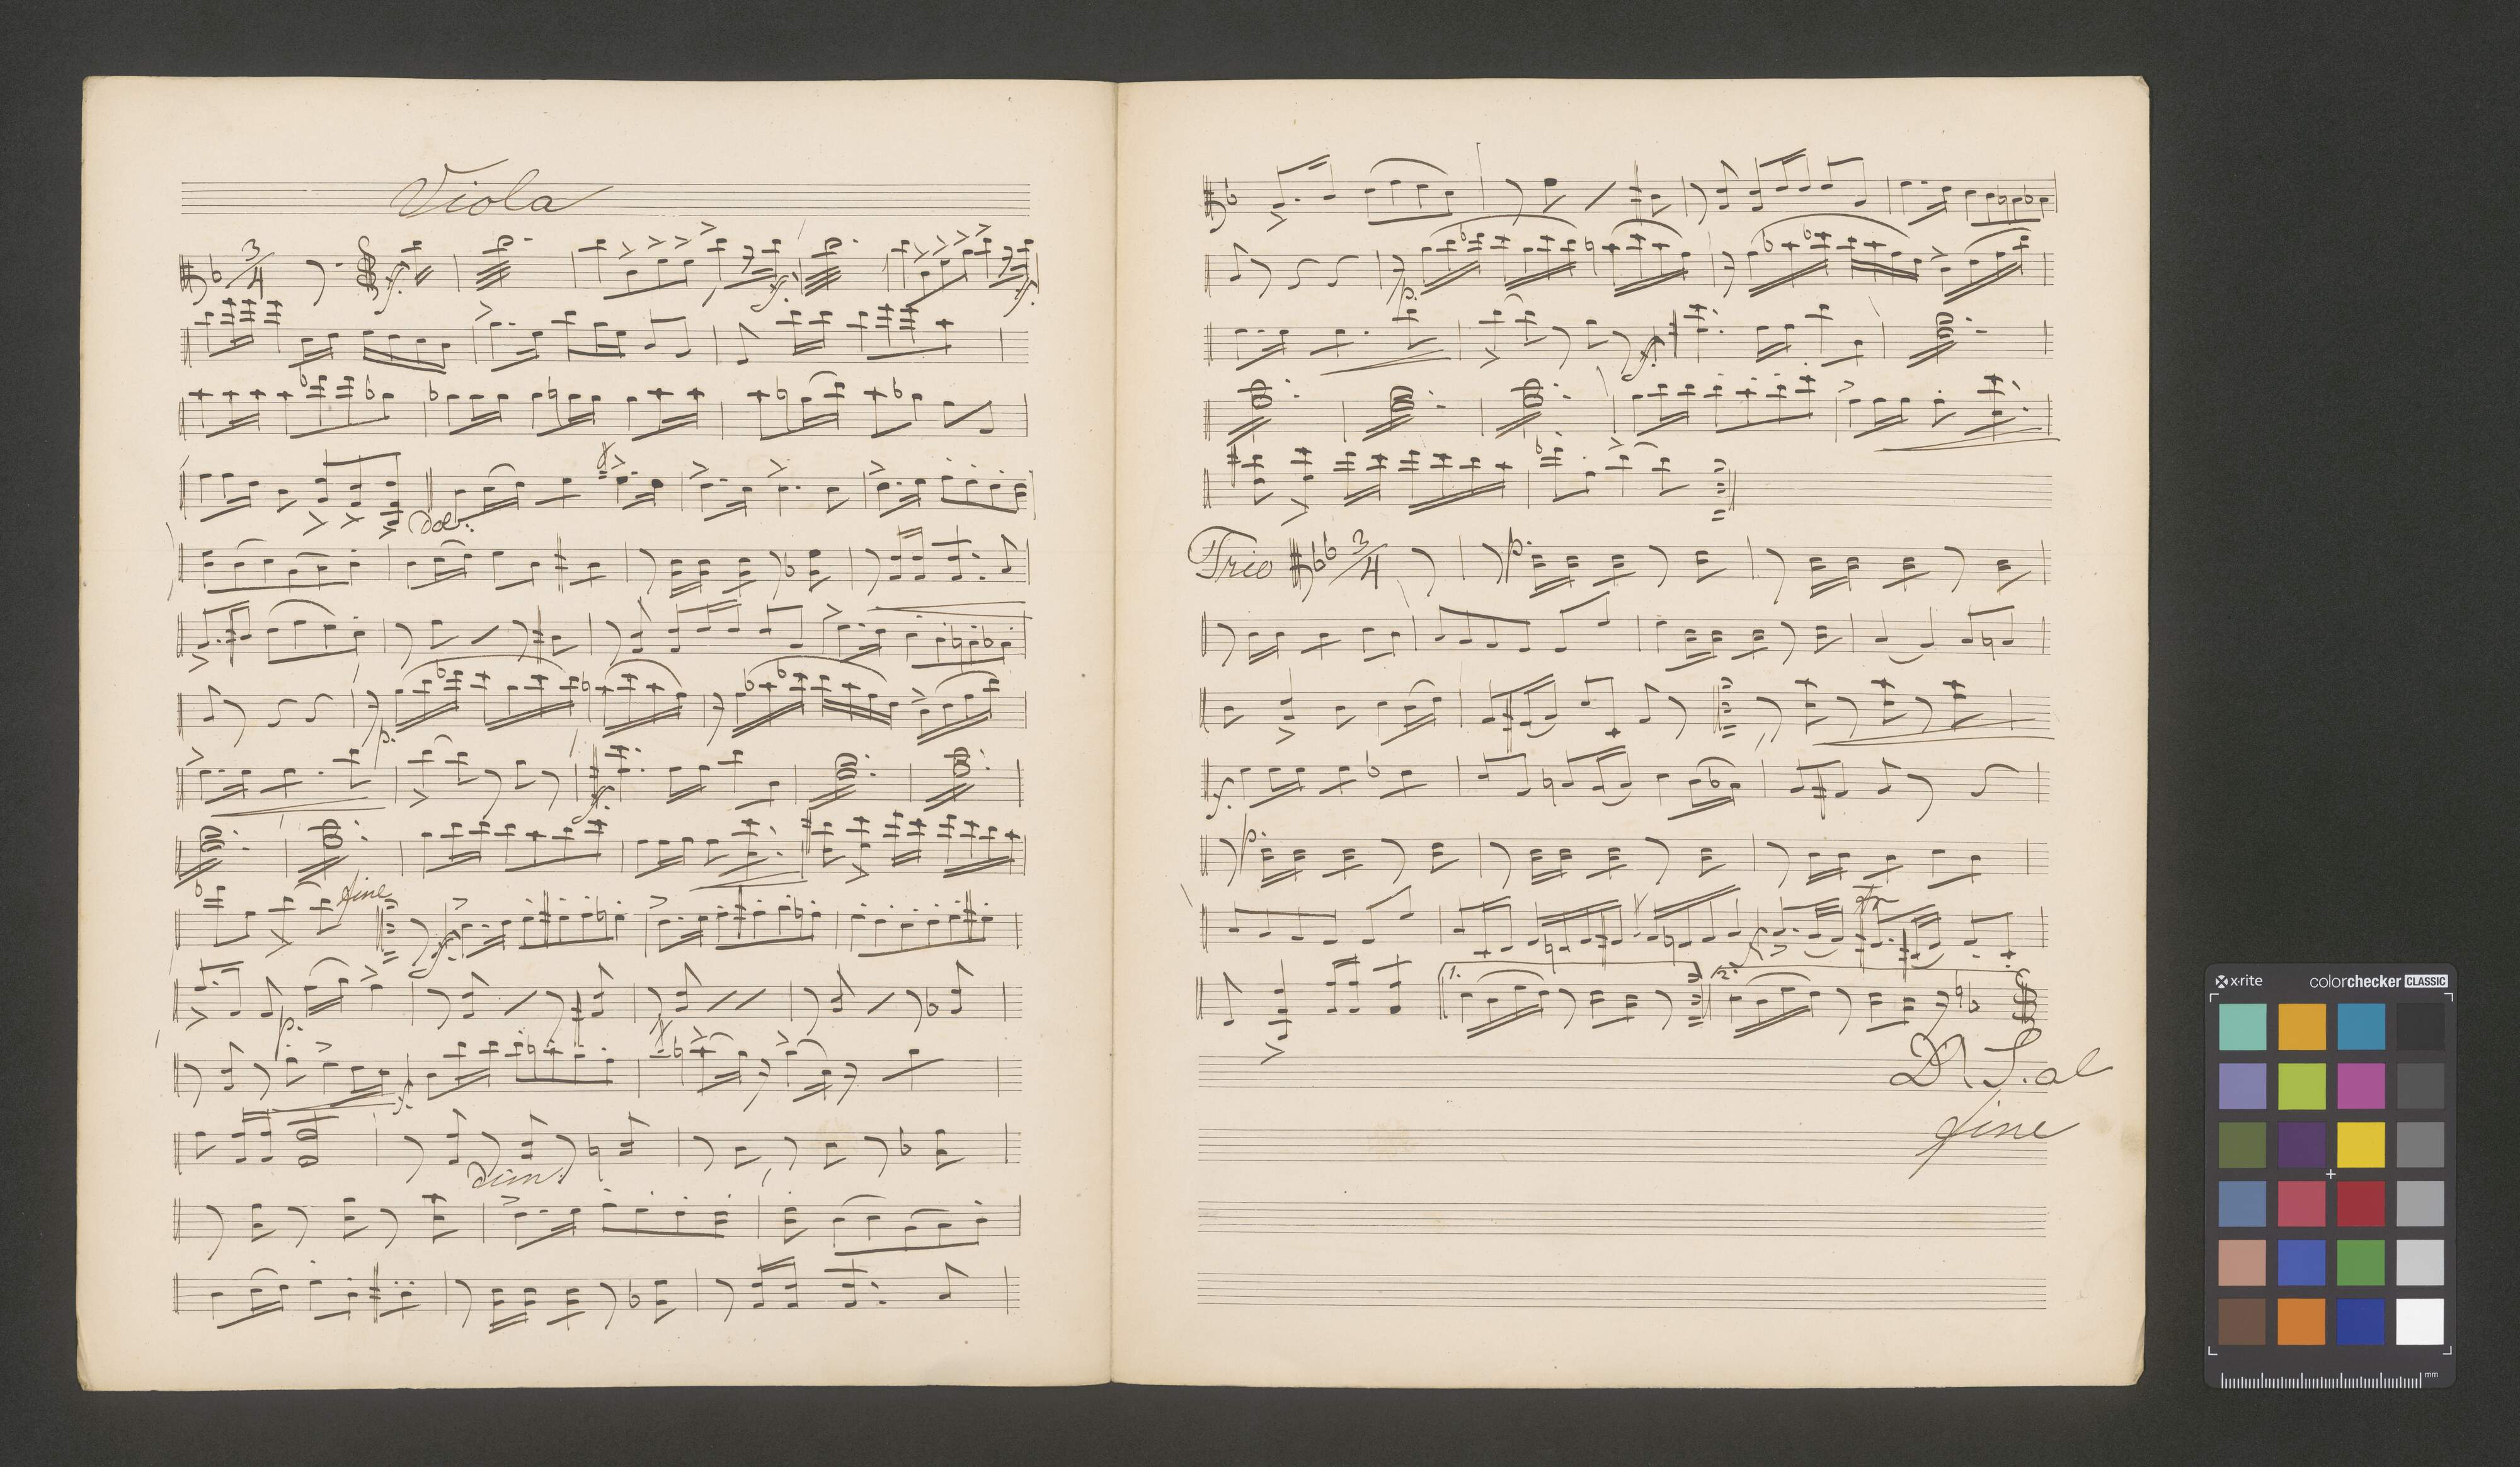 Viola
3/4
f.
f.
f.
dol.
p.
f.
fine
f.
p.
f.
dim.
p.
f.
Trio 3/4 p.
f.
p.
f tr
1. 2.
D S. al
fine
x-rite colorchecker CLASSIC
mm